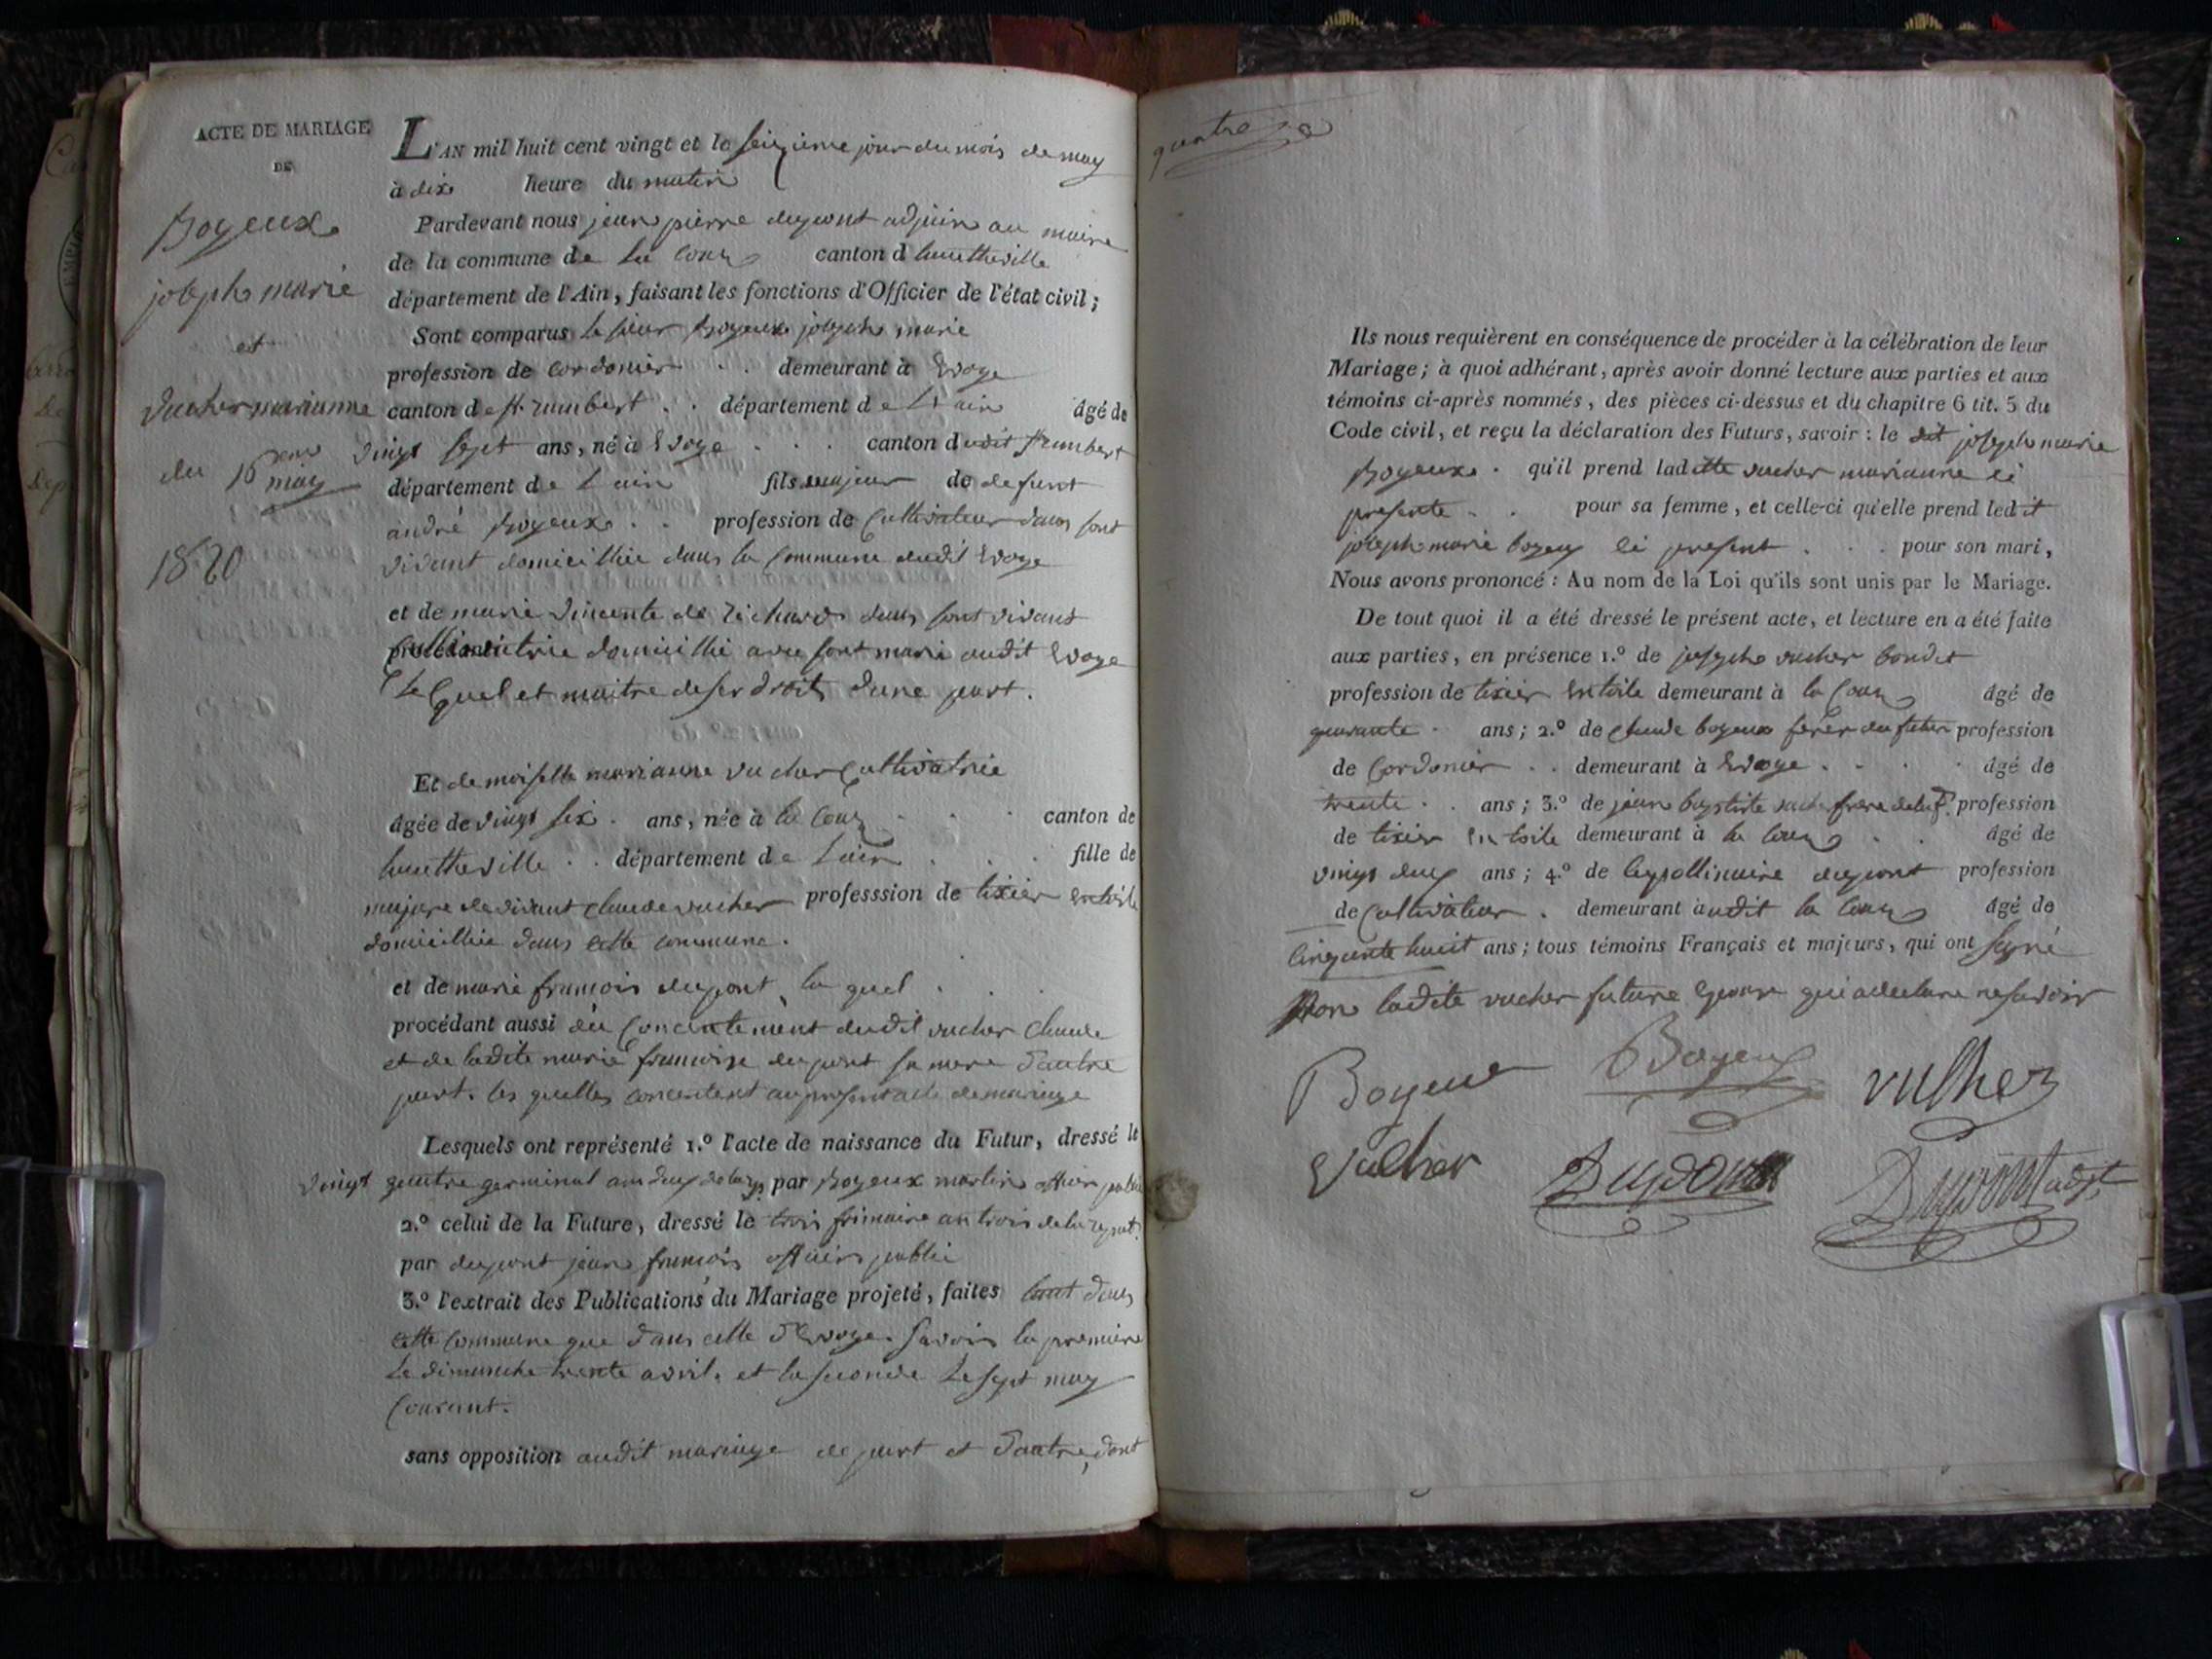 ACTE DE MARIAGE
DE
Boyeux
joseph marie
et
vucher marianne
du 16eme may
1820
L'AN mil huit cent vingt et le seizieme jour du mois de may
à dix heure du matin
Pardevant nous jean pierre dupont adjoin au maire
de la commune de la Coux canton d hautteville
département de l'Ain, faisant les fonctions d'Officier de l'état civil ;
Sont comparus le sieur Boyeux joseph marie
profession de Cordonier demeurant à Evoge
canton de st. rambert département de L'ain âgé de
vingt sept ans, né à Evoge canton dudit st rambert
département de L'ain fils majeur de defunt
andré Boyeux profession de Cultivateur dans sont
vivant domicillié dans la Commune dudit Evoge
et de marie vincente de richard dans sont vivant
Cultivatrie domicillié avec sont mari audit Evoge
Le quel et maitre de ser droits dune part.
Et demoiselle marianne vucher Cultivatrie
âgée de vingt six ans, née à la Coux canton de
hautteville département de L'ain fille de
majure de vivant claude vucher professsion de tixier en toile
domicillié dans cette commune.
et de marie francois dupont la quel
procédant aussi du Concentement dudit vucher Claude
et de ladite marie francoise dupont sa mere d'autre
part. les quelles concentent au present acte de mariage
Lesquels ont représenté 1.º l'acte de naissance du Futur, dressé le
vingt quatre germinal an deux par Boyeux martin officier public
2.º celui de la Future, dressé le trois frimaire an trois de la repub.
par dupont jean francois officier public
3.º l'extrait des Publications du Mariage projeté, faites tant dans
cette commune que dans celle d'Evoge. Savoir la premiere
Le dimanche trente avril. et la seconde Le sept may
Courant.
sans opposition audit mariage de part et d'autre, dont
Ils nous requièrent en conséquence de procéder à la célébration de leur
Mariage ; à quoi adhérant, après avoir donné lecture aux parties et aux
témoins ci-après nommés, des pièces ci-dessus et du chapitre 6 tit. 5 du
Code civil, et reçu la déclaration des Futurs, savoir : le dit joseph marie
Boyeux qu'il prend laditte vucher marianne ci
presente pour sa femme, et celle-ci qu'elle prend ledit
joseph marie boyeux ci present pour son mari,
Nous avons prononcé : Au nom de la Loi qu'ils sont unis par le Mariage.
De tout quoi il a été dressé le présent acte, et lecture en a été faite
aux parties, en présence 1.º de joseph vucher
profession de tixier en toile demeurant à la Coux âgé de
quarante ans ; 2.º de claude boyeux frere du futur profession
de Cordonier demeurant à Evoge âgé de
trente ans ; 3.º de jean baptiste vucher frere de la f. profession
de tixier en toile demeurant à la Coux âgé de
vingt deux ans ; 4.º de appollinaire dupont profession
de Cultivateur demeurant audit la Coux âgé de
Cinquante huit ans ; tous témoins Français et majeurs, qui ont signé
Non ladite vucher future Epoux qui a declare ne savoir
Boyeux Boyeux vulher
vulher Dupont Dupont adjt